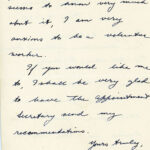 seems to know very much
about it, I am very
anxious to be a volunteer
worker.
If you would like me
to, I shall be very glad
to have the Appointment
Secretary send my
recommendations.
Yours truly,